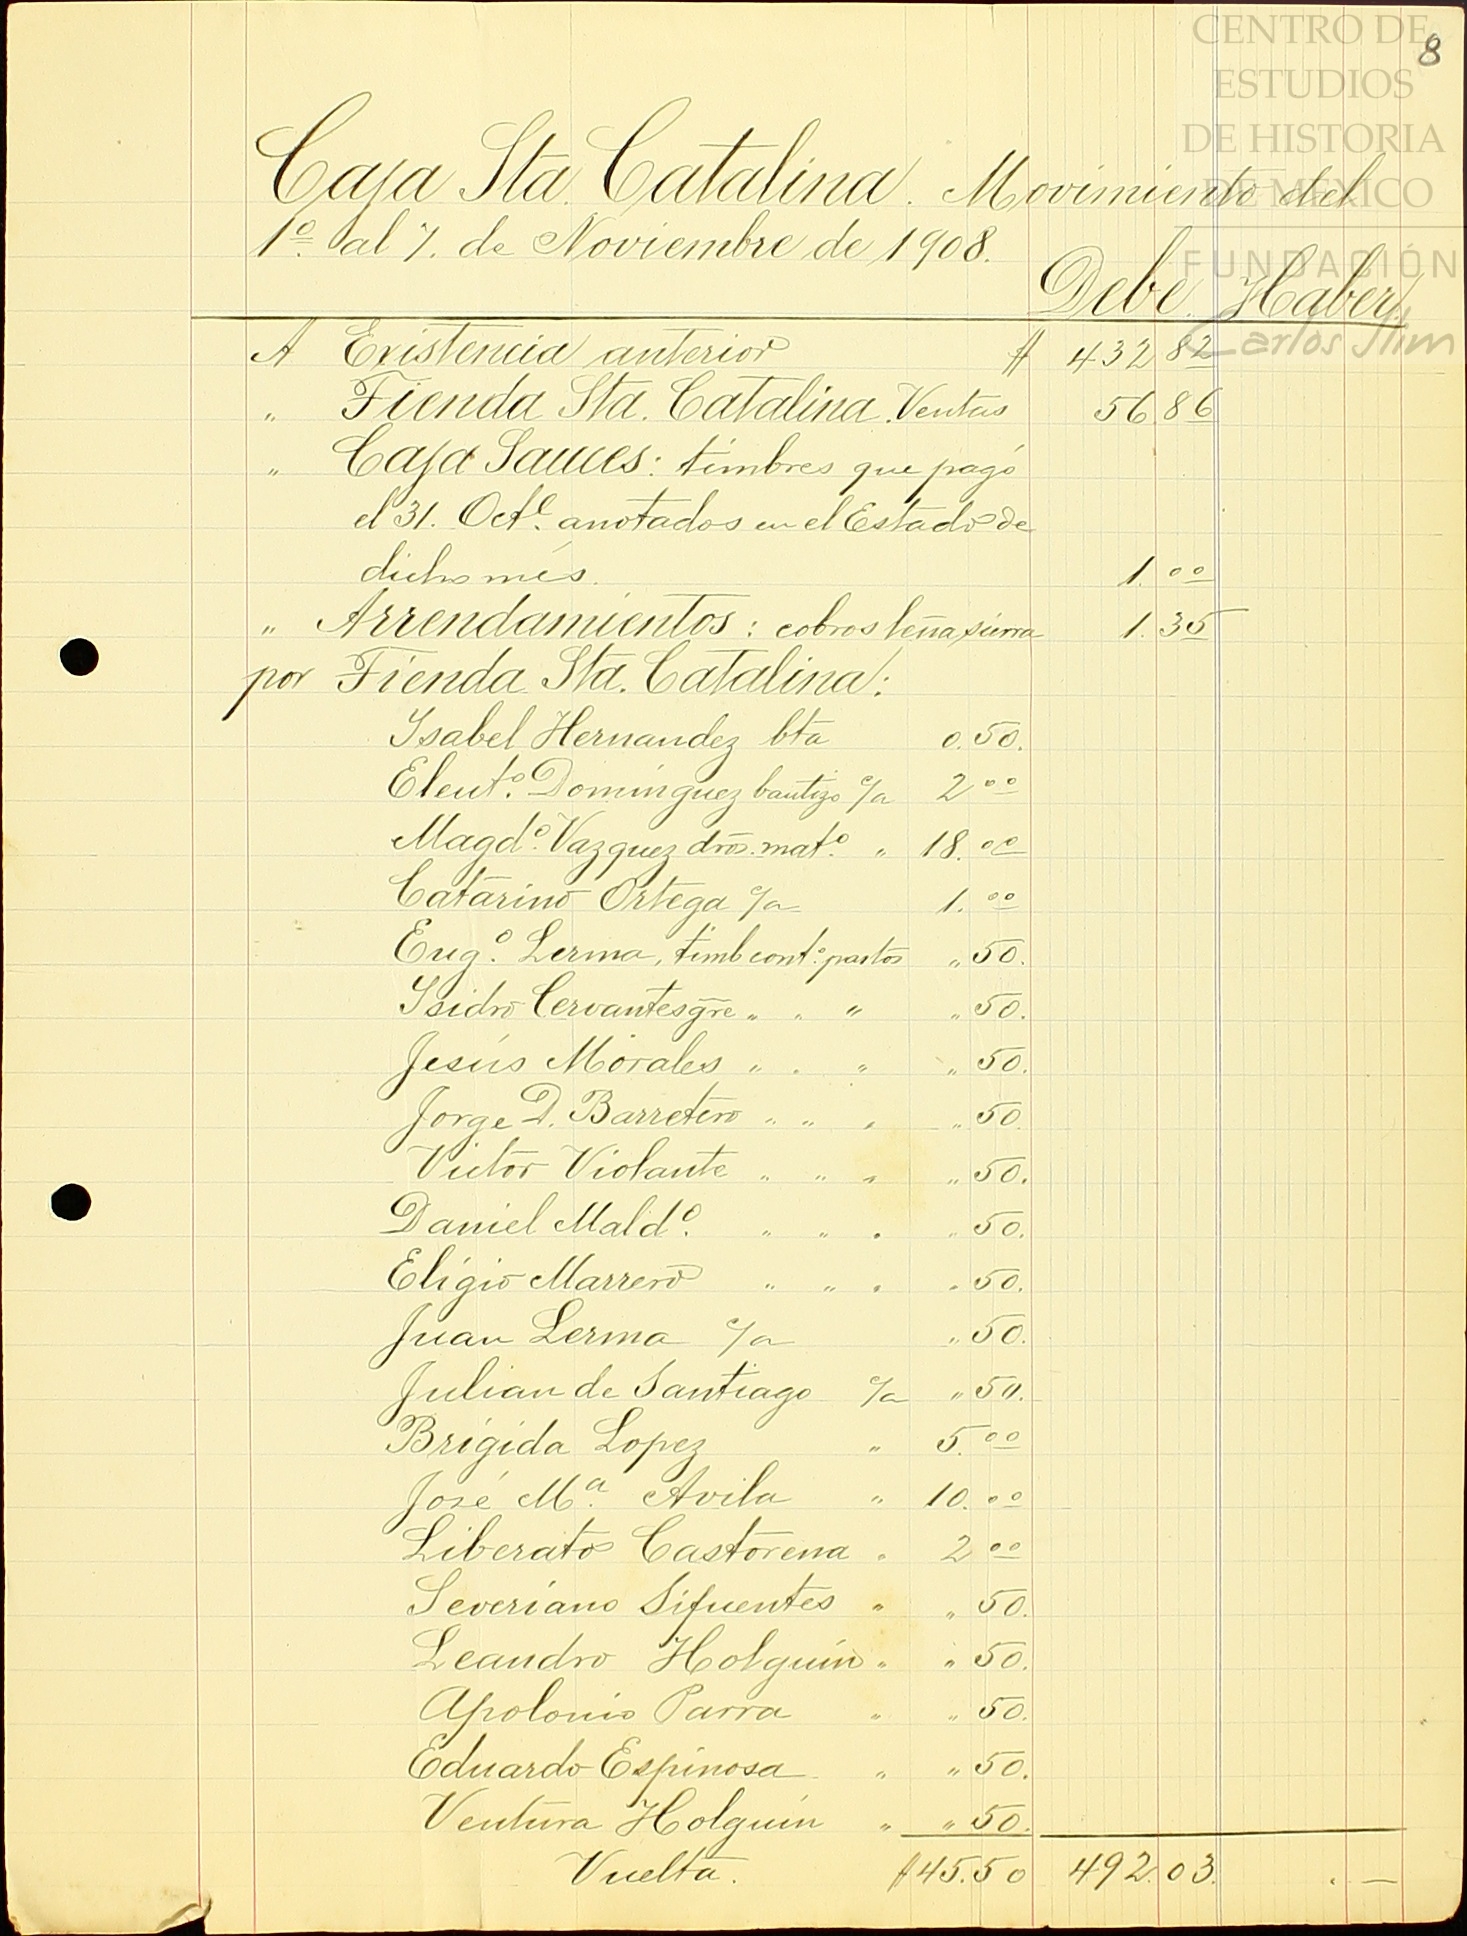 CENTRO DE
ESTUDIOS
DE HISTORIA
DE MÉXICO
FUNDACIÓN
Carlos Slim
8
Caja Sta. Catalina. Movimiento del
1º al 7. de Noviembre de 1908.
Debe. Haber
A Existencia anterior $ 432 82
" Tienda Sta. Catalina. Ventas 56.86
" Caja Sauces: timbres que pagó
el 31. Oct.e anotados en el Estado de
dicho més. 1.00
" Arrendamientos: cobros leña sierra 1.35
por Tienda Sta. Catalina:
Ysabel Hernandez bta 0.50.
Eleut.o Domínguez bautizo c/a 2 00
Magd.o Vazquez dros. mat.o " 18.00
Catarino Ortega c/a 1.00
Eug.o Lerma, timb cont.o pastos " 50.
Ysidro Cervantes gre " " " " 50.
Jesús Morales " " " " 50.
Jorge D. Barretero " " " " 50.
Victor Violante " " " " 50.
Daniel Mald.o " " " " 50.
Eligio Marrero " " " " 50.
Juan Lerma c/a " 50.
Julian de Santiago c/a " 50.
Brígida Lopez " 5.00
José M.a Avila " 10.00
Liberato Castorena " 2 00
Severiano Sifuentes " " 50.
Leandro Holguin " " 50.
Apolonio Parra " " 50.
Eduardo Espinosa " " 50.
Ventura Holguin " " 50.
Vuelta. $45.50 492.03. . —